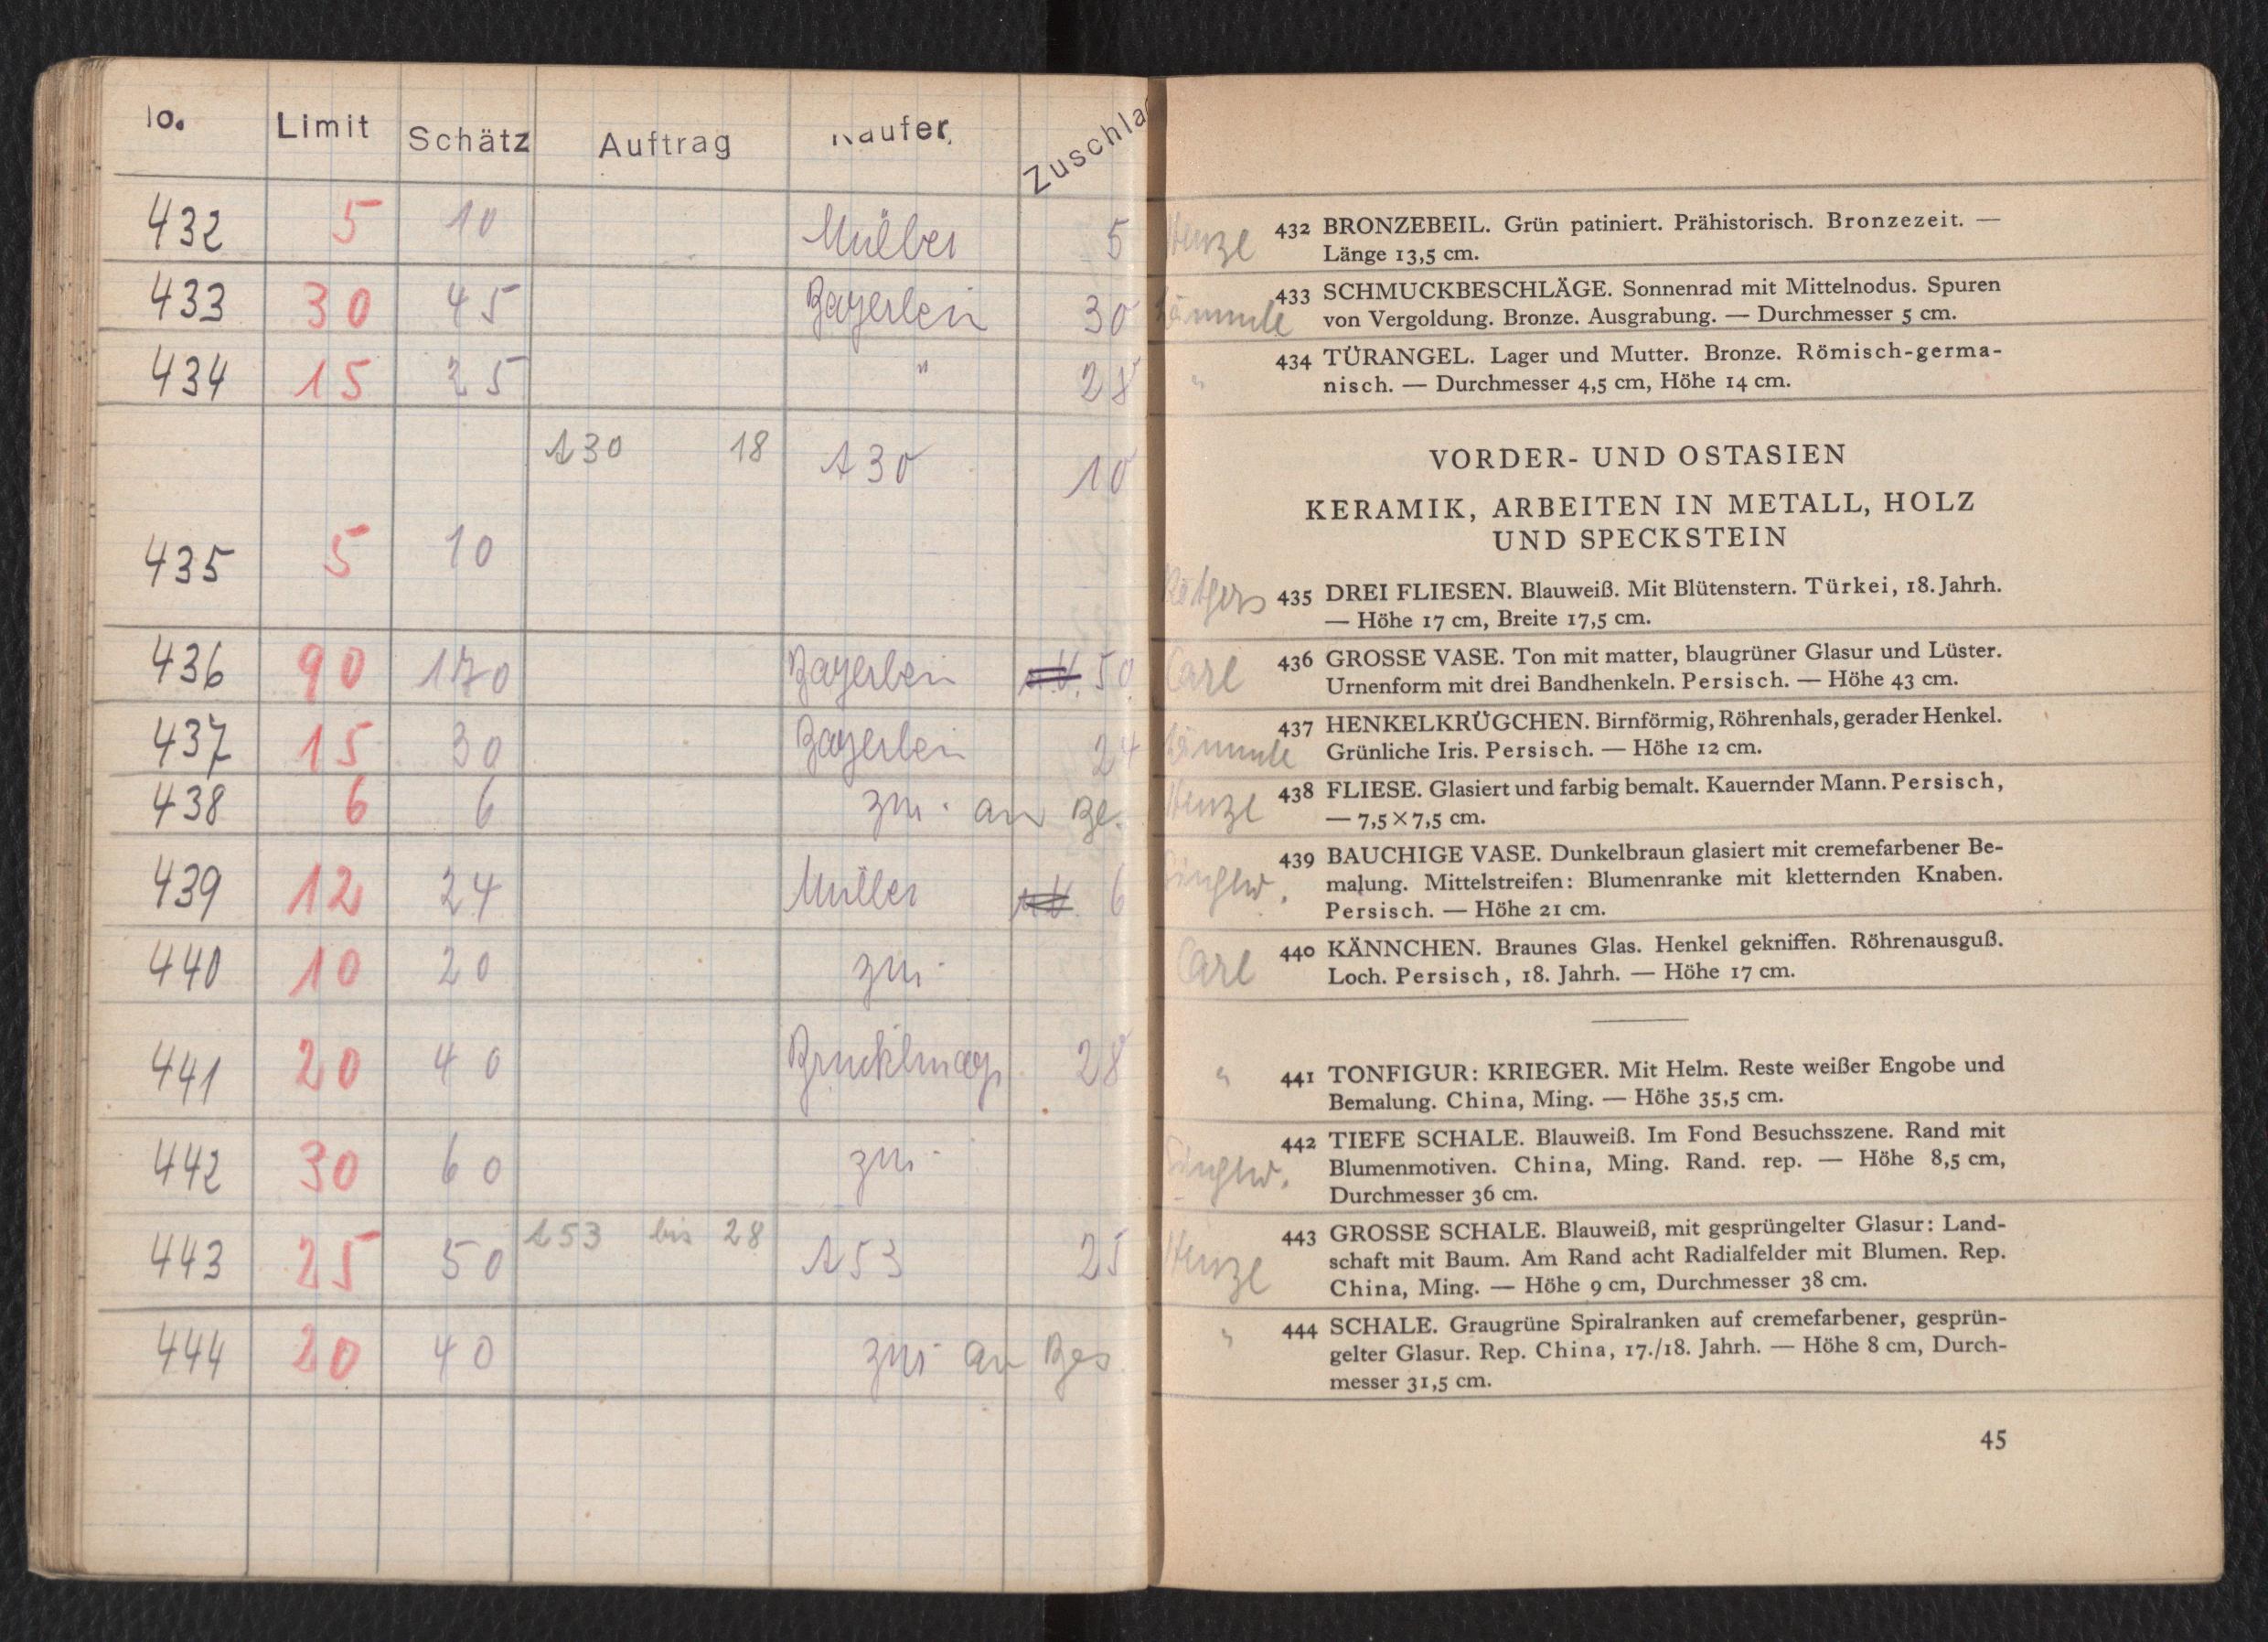 No. Limit Schätz Auftrag Käufer Zuschlag
432 5 10 Müller 5
433 30 45 Bayerlein 30
434 15 25 " 28
A 30 18 A 30 10
435 5 10
436 90 170 Bayerlein 50
437 15 30 Bayerlein 24
438 6 6 zur. an Be.
439 12 24 Müller 6
440 10 20 zur.
441 20 40 28
442 30 60 zur.
443 25 50 A 53 bis 28 A 53 25
444 20 40 zur. an Bes.
Henze 432 BRONZEBEIL. Grün patiniert. Prähistorisch. Bronzezeit. —
Länge 13,5 cm.
433 SCHMUCKBESCHLÄGE. Sonnenrad mit Mittelnodus. Spuren
von Vergoldung. Bronze. Ausgrabung. — Durchmesser 5 cm.
" 434 TÜRANGEL. Lager und Mutter. Bronze. Römisch-germa-
nisch. — Durchmesser 4,5 cm, Höhe 14 cm.
VORDER- UND OSTASIEN
KERAMIK, ARBEITEN IN METALL, HOLZ
UND SPECKSTEIN
435 DREI FLIESEN. Blauweiß. Mit Blütenstern. Türkei, 18. Jahrh.
— Höhe 17 cm, Breite 17,5 cm.
Carl 436 GROSSE VASE. Ton mit matter, blaugrüner Glasur und Lüster.
Urnenform mit drei Bandhenkeln. Persisch. — Höhe 43 cm.
437 HENKELKRÜGCHEN. Birnförmig, Röhrenhals, gerader Henkel.
Grünliche Iris. Persisch. — Höhe 12 cm.
Henze 438 FLIESE. Glasiert und farbig bemalt. Kauernder Mann. Persisch,
— 7,5 × 7,5 cm.
439 BAUCHIGE VASE. Dunkelbraun glasiert mit cremefarbener Be-
malung. Mittelstreifen: Blumenranke mit kletternden Knaben.
Persisch. — Höhe 21 cm.
Carl 440 KÄNNCHEN. Braunes Glas. Henkel gekniffen. Röhrenausguß.
Loch. Persisch, 18. Jahrh. — Höhe 17 cm.
" 441 TONFIGUR: KRIEGER. Mit Helm. Reste weißer Engobe und
Bemalung. China, Ming. — Höhe 35,5 cm.
442 TIEFE SCHALE. Blauweiß. Im Fond Besuchsszene. Rand mit
Blumenmotiven. China, Ming. Rand. rep. — Höhe 8,5 cm,
Durchmesser 36 cm.
Henze 443 GROSSE SCHALE. Blauweiß, mit gesprüngelter Glasur: Land-
schaft mit Baum. Am Rand acht Radialfelder mit Blumen. Rep.
China, Ming. — Höhe 9 cm, Durchmesser 38 cm.
" 444 SCHALE. Graugrüne Spiralranken auf cremefarbener, gesprün-
gelter Glasur. Rep. China, 17./18. Jahrh. — Höhe 8 cm, Durch-
messer 31,5 cm.
45